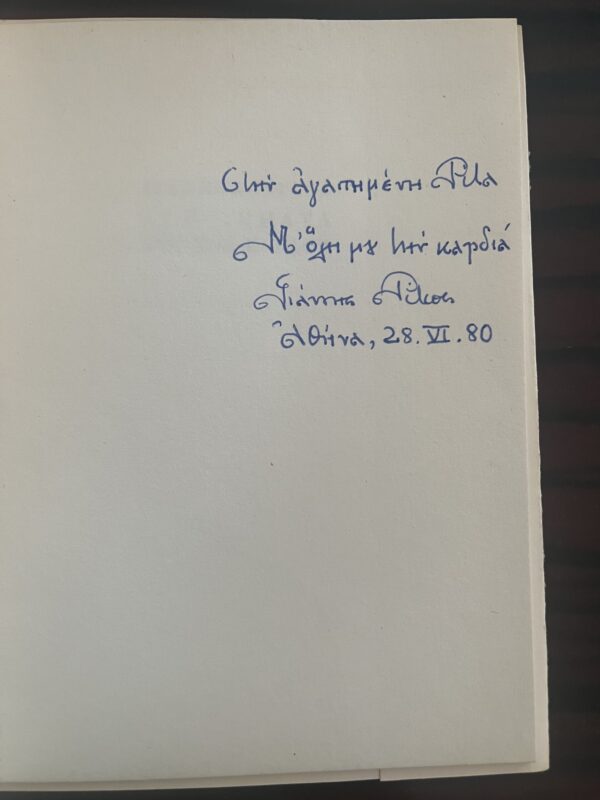 Στὴν ἀγαπημένη Ρίτα
Μ' ὅλη μου τὴν καρδιά
Γιάννης Ρίτσος
Ἀθήνα, 28.VI.80